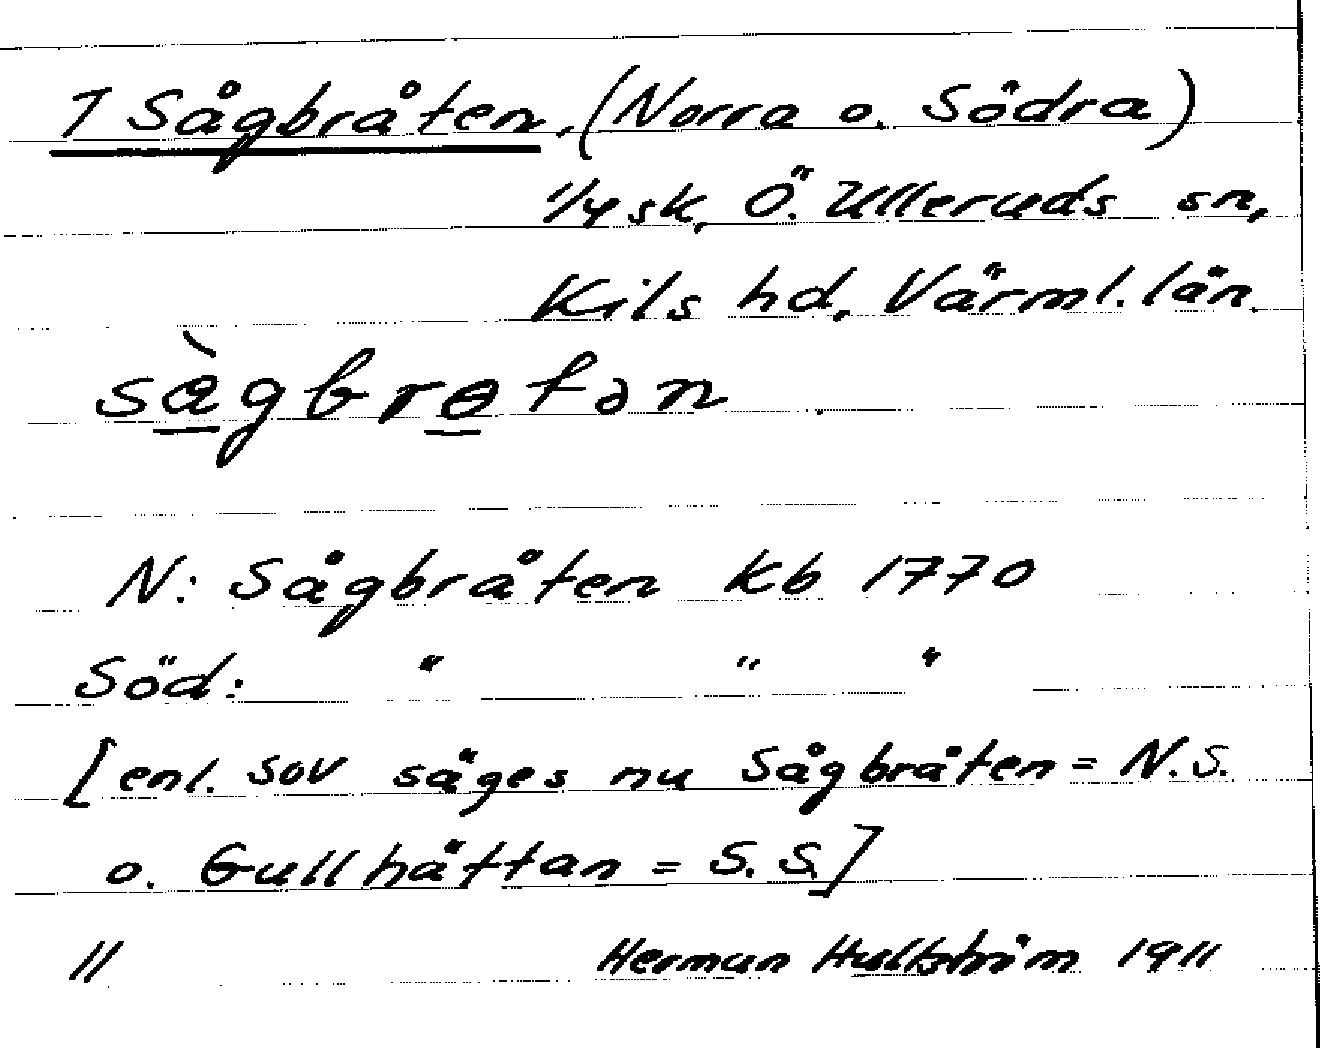 7 Sågbråten, (Norra o. Södra)
1/4 sk, Ö. Ulleruds sn,
Kils hd, Värml. län.
sàgbretən
N: Sågbråten Kb 1770
Söd: " " "
[enl. SOV säges nu Sågbråten = N.S.
o. Gullhättan = S. S.]
11 Herman Hultström 1911